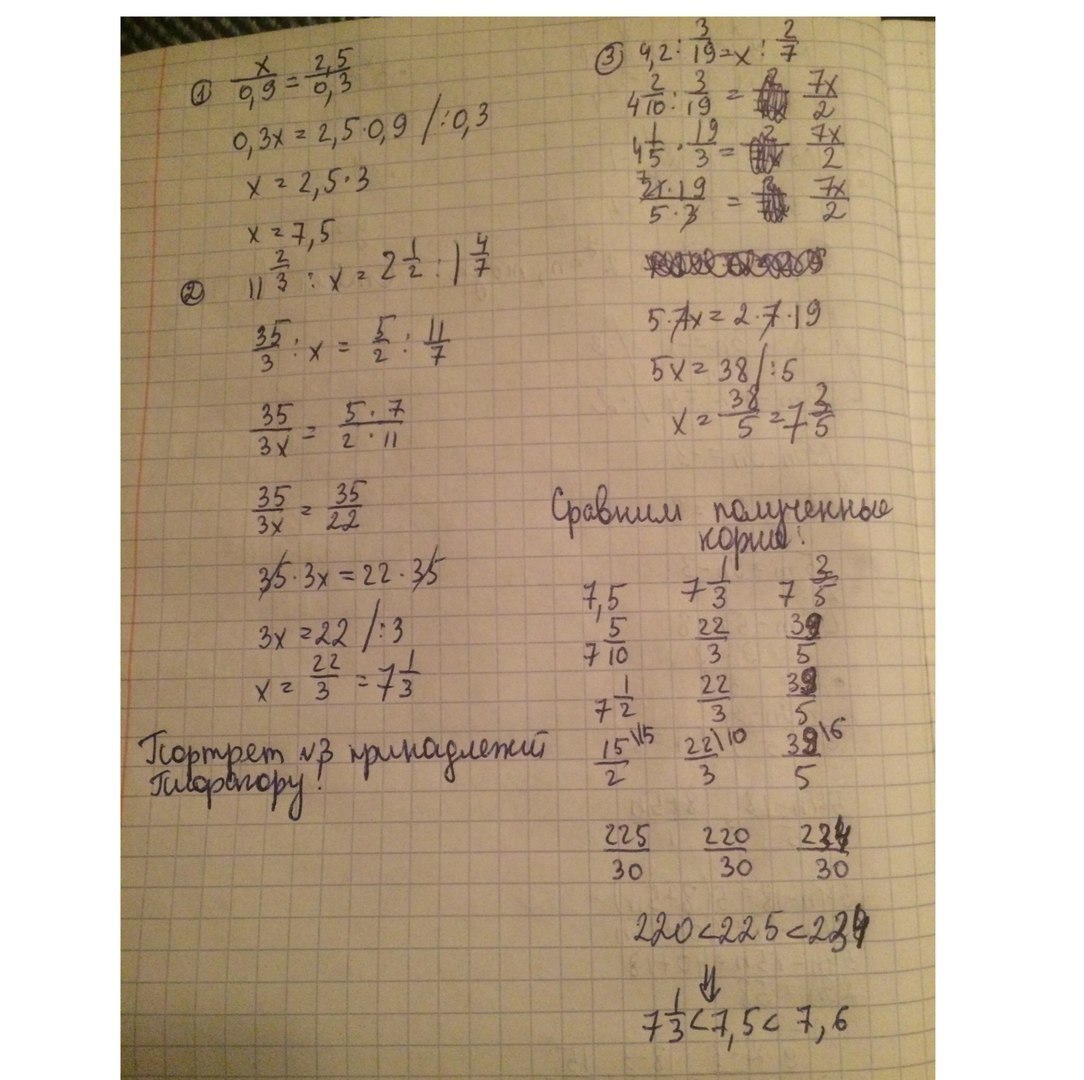 ① x/0,9 = 2,5/0,3
0,3x = 2,5·0,9 /:0,3
x = 2,5·3
x = 7,5
② 11 2/3 : x = 2 1/2 : 1 4/7
35/3 : x = 5/2 : 11/7
35/3x = 5·7/2·11
35/3x = 35/22
35·3x = 22·35
3x = 22 /:3
x = 22/3 = 7 1/3
Портрет №3 принадлежит
Пифагору!
③ 4,2 : 3/19 = x : 2/7
4 2/10 : 3/19 = 7x/2
4 1/5 · 19/3 = 7x/2
7 21·19/5·3 = 7x/2
5·7x = 2·7·19
5x = 38 /:5
x = 38/5 = 7 3/5
Сравним полученные
корни:
7,5 7 1/3 7 3/5
7 5/10 22/3 38/5
7 1/2 22/3 38/5
15/2 \15 22/3 \10 38/5 \6
225/30 220/30
220<225<
⇓
7 1/3 < 7,5 < 7,6